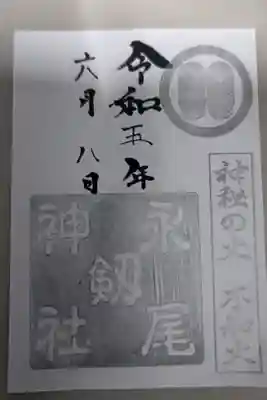 神秘の火 不知火
令和五年
六月八日
永尾
剱
神社